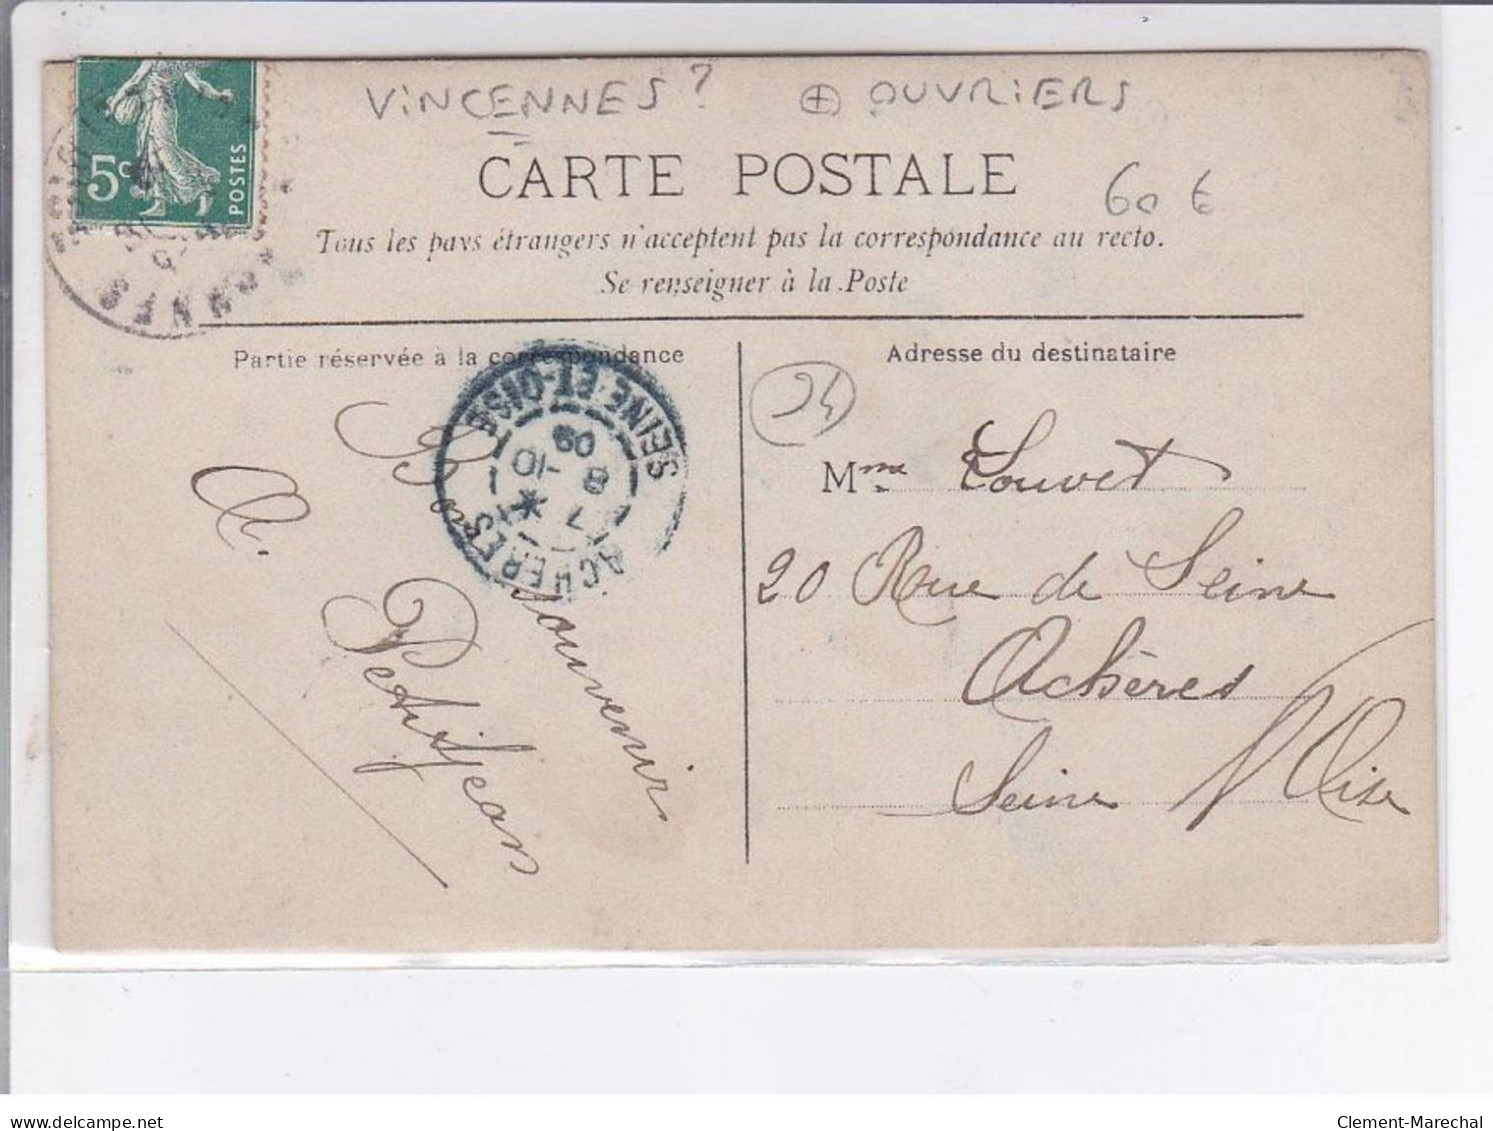 VINCENNES? ⊕ OUVRIERS
5c POSTES
CARTE POSTALE
60 €
Tous les pays étrangers n'acceptent pas la correspondance au recto.
Se renseigner à la Poste
Partie réservée à la correspondance
Adresse du destinataire
94
SEINE-ET-OISE
ACHERES
7 *
8 -10
09
Bon souvenir
A. Petitjean
Mme Louvet
20 Rue de Seine
Achères
Seine & Oise
delcampe.net
Clement-Marechal